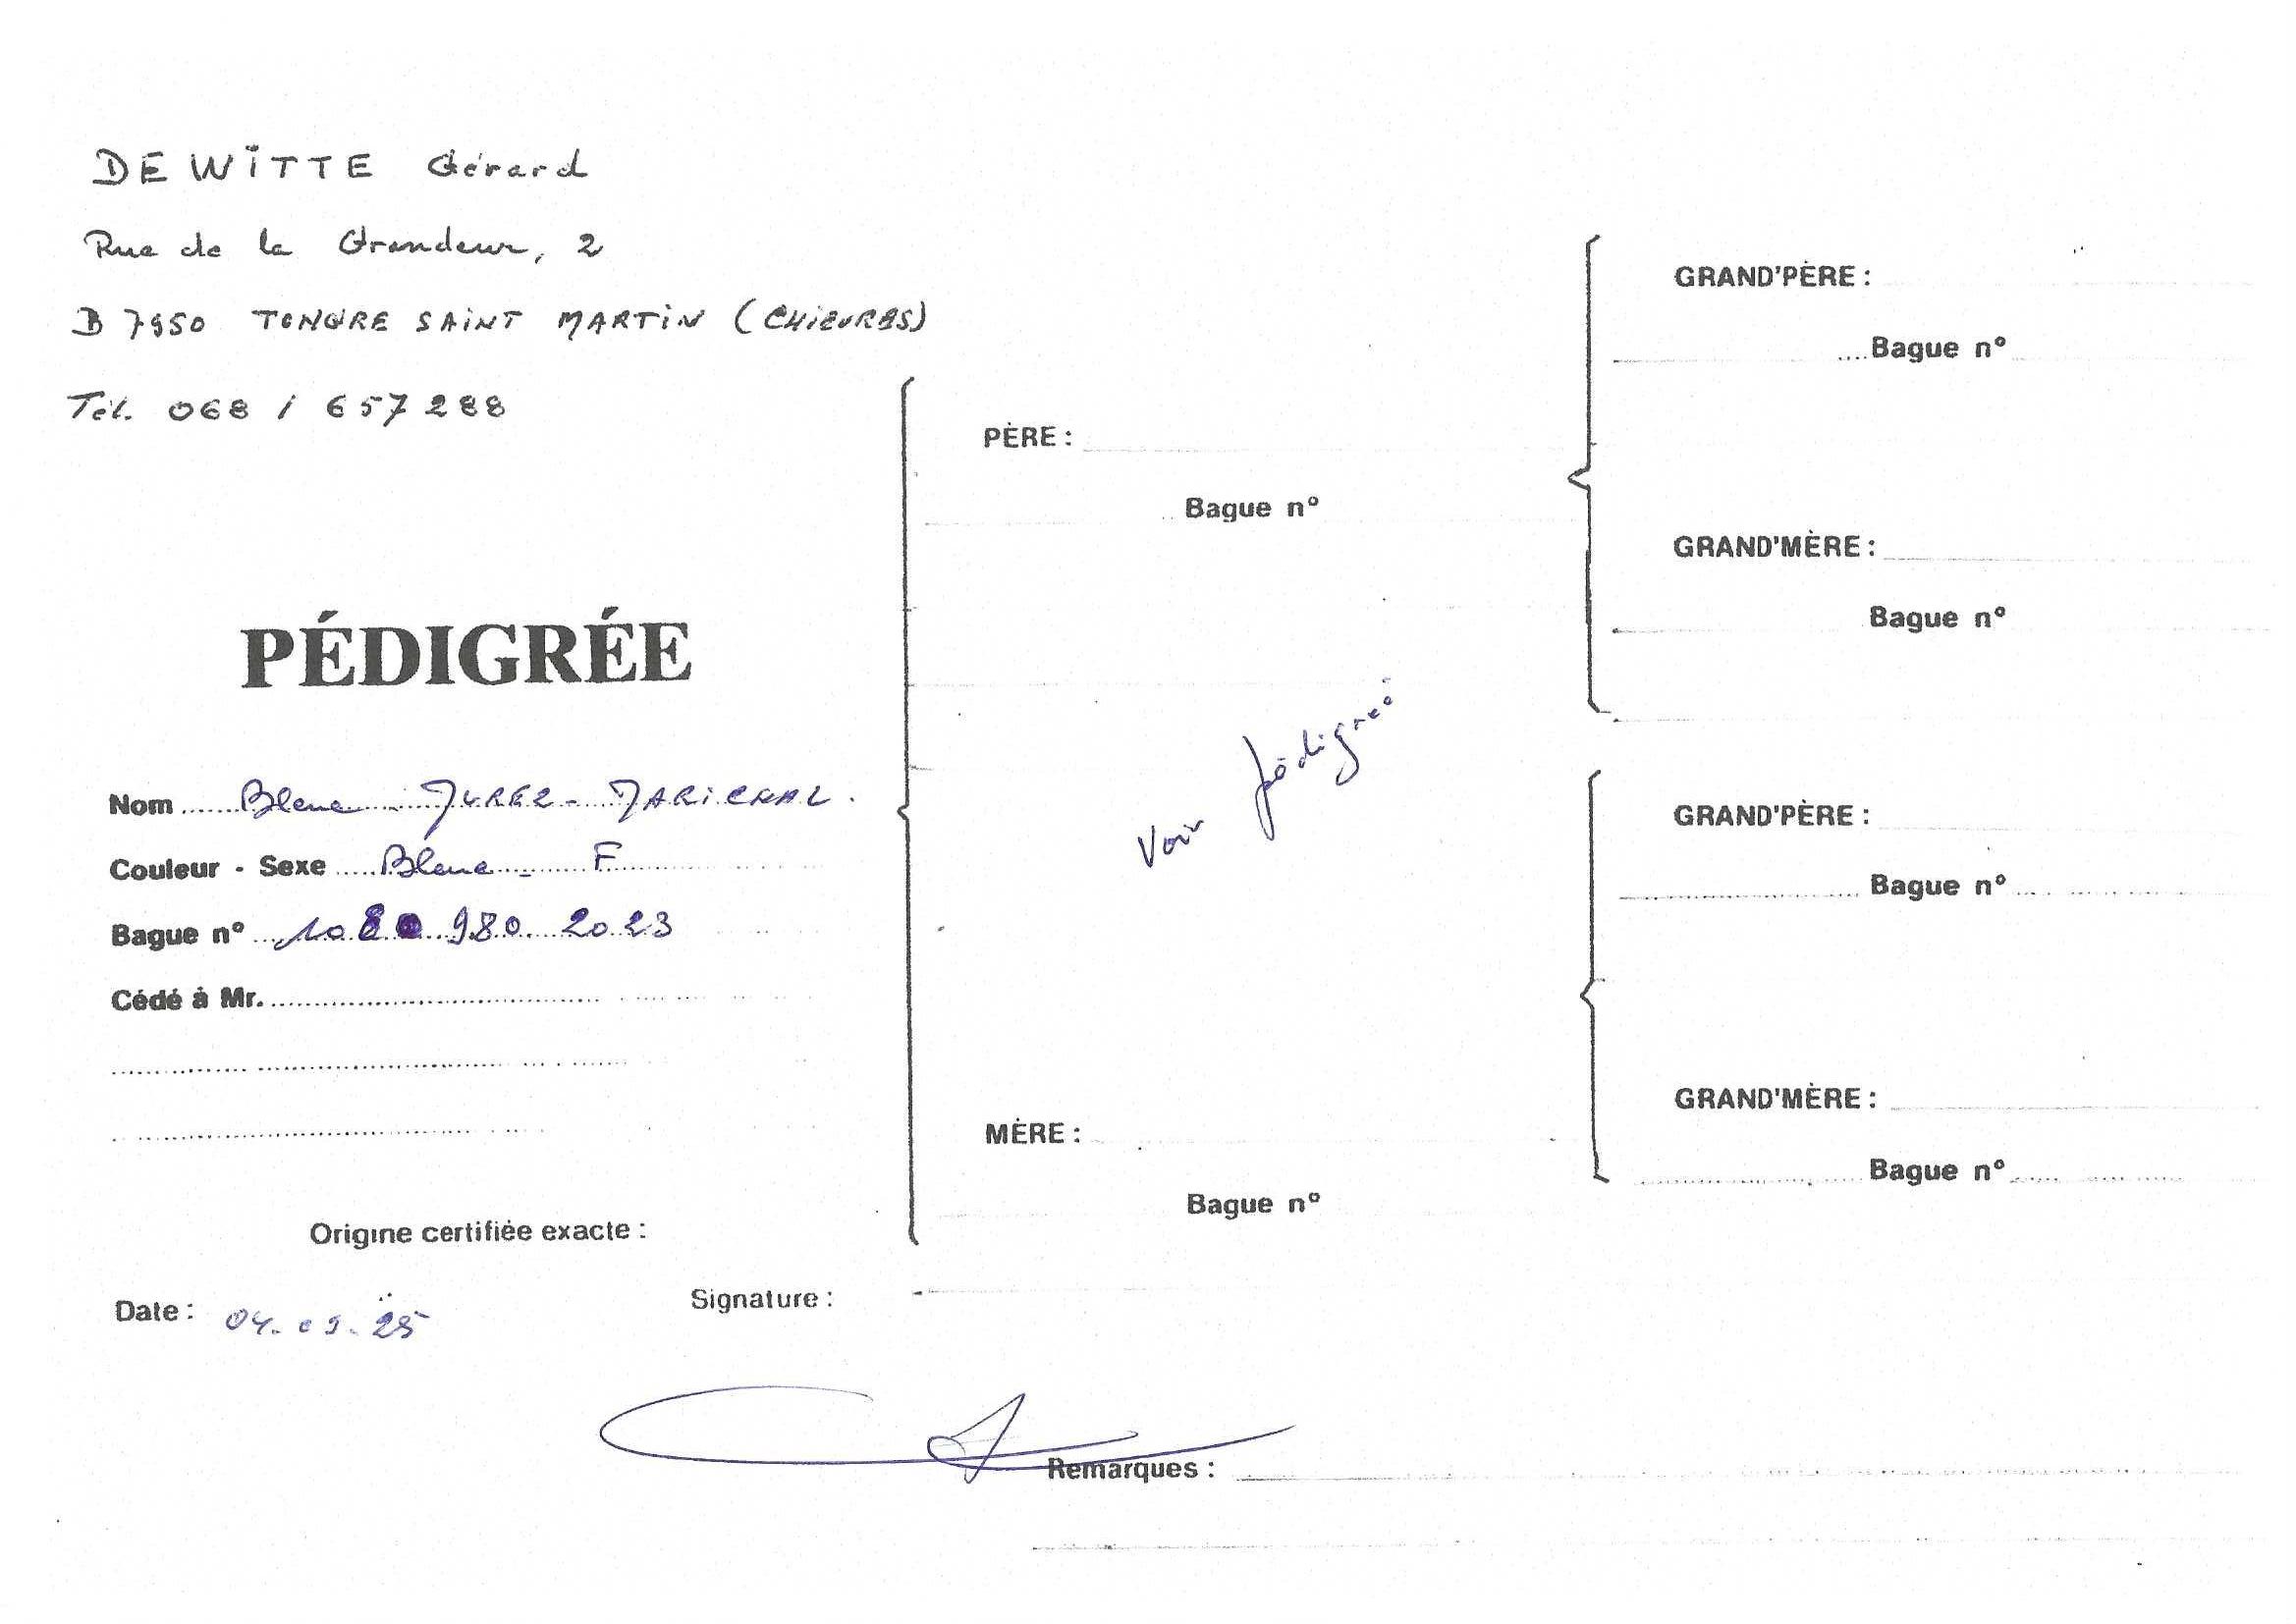 DEWITTE Gérard
Rue de la Grandeur, 2
B 7950 TONGRE SAINT MARTIN (CHIEVRES)
Tél. 068 / 657288
PÉDIGRÉE
Nom Bleue
Couleur - Sexe Bleue - F
Bague n° 980 2023
Cédé à Mr.
Origine certifiée exacte :
Date : 04.09.25
Signature :
PÈRE :
Bague n°
Voir pédigreé
MÈRE :
Bague n°
GRAND'PÈRE :
Bague n°
GRAND'MÈRE :
Bague n°
GRAND'PÈRE :
Bague n°
GRAND'MÈRE :
Bague n°
Remarques :